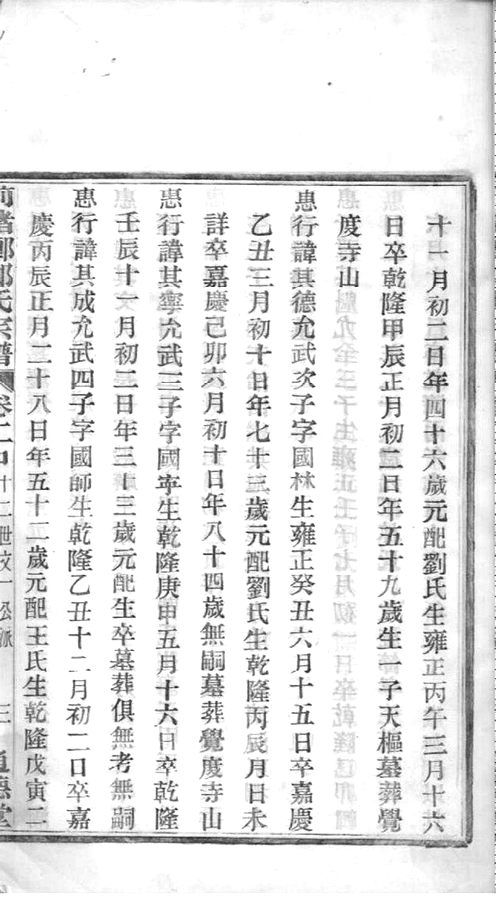 十一月初二日年四十六歲元配劉氏生雍正丙午三月十六
日卒乾隆甲辰正月初二日年五十九歲生一子天樞墓葬覺
度寺山
惠行諱其德允武次子字國林生雍正癸丑六月十五日卒嘉慶
乙丑三月初十日年七十三歲元配劉氏生乾隆丙辰月日未
詳卒嘉慶己卯六月初十日年八十四歲無嗣墓葬覺度寺山
惠行諱其寧允武三子字國寧生乾隆庚申五月十六日卒乾隆
壬辰十一月初二日年三十三歲元配生卒墓葬俱無考無嗣
惠行諱其成允武四子字國師生乾隆乙丑十二月初二日卒嘉
慶丙辰正月二十八日年五十二歲元配王氏生乾隆戊寅二
氏宗譜 卷二中 十二世 一 派 三